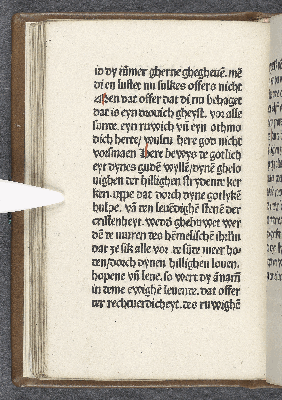 ic dy ūmer gherne gheghevē. mē
di en lustet nu sulkes offers nicht
Men dat offer dat di nu behaget
dat is eyn drovich gheyst. vor alle
sante. eyn ruwich vñ eyn othmo
dich herte, wultu here god nicht
vorsmaen Here bewys te gotlich
eyt dynes gudē wyllē, dynē ghelo
vighen der hillighen strydente ker
ken. uppe dat dorch dyne gotlykē
hulpe. vā ten levēdighē stenē der
cristenheyt. werdē ghebuwet wer
dē te muren tes hēmelischē ihrlm
dat ze sik alle vor te sūte meer ho
ten, dorch dynen hillighen loven.
hopene vñ leve. so wert dy ānam
in teme ewighē levente. dat offer
ter rechtverdicheyt. tes ruwighē